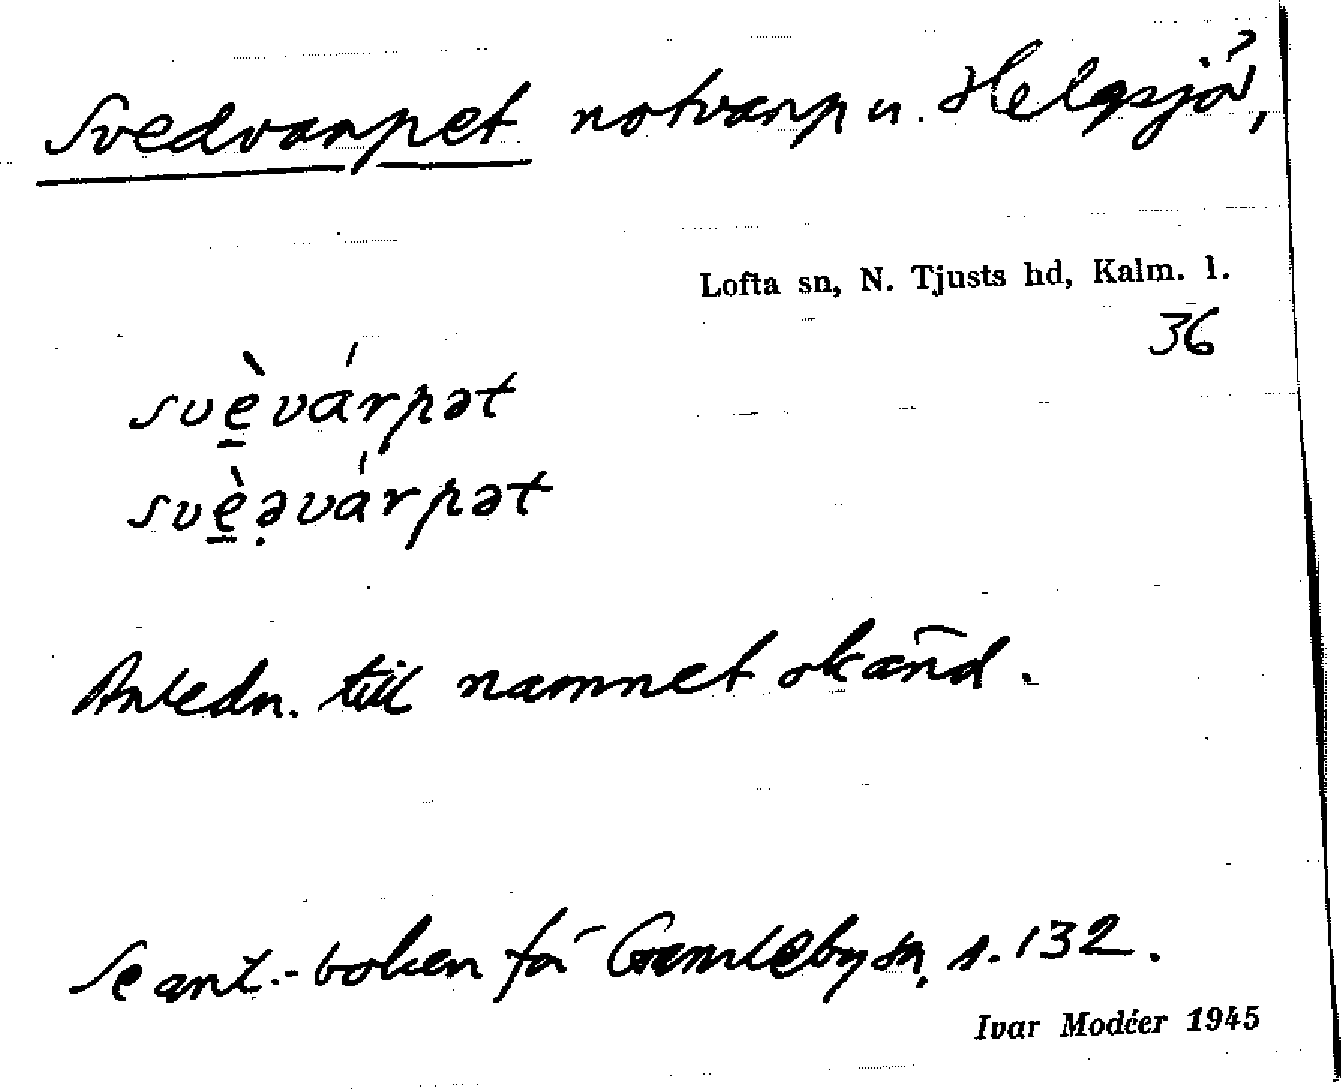 Svedvarpet notvarp u. Helgsjö,
Lofta sn, N. Tjusts hd, Kalm. l.
36
svè̱várpət
svè̱ə̣várpət
Anledn. till namnet okänd.
Se ant.-boken för Gamleby sn, s. 132.
Ivar Modéer 1945